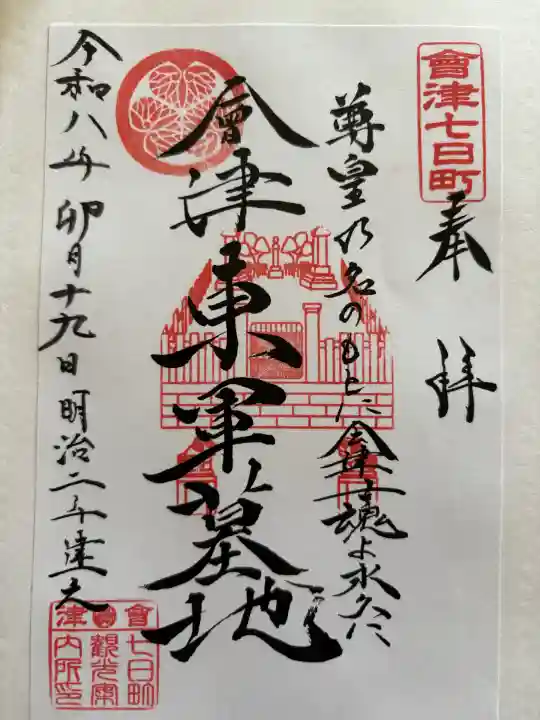 會津七日町
奉拝
尊皇の名のもとに會津魂よ永久に
會津東軍墓地
令和八年卯月十九日 明治二年建之
會七日町
観光案
津
内所印